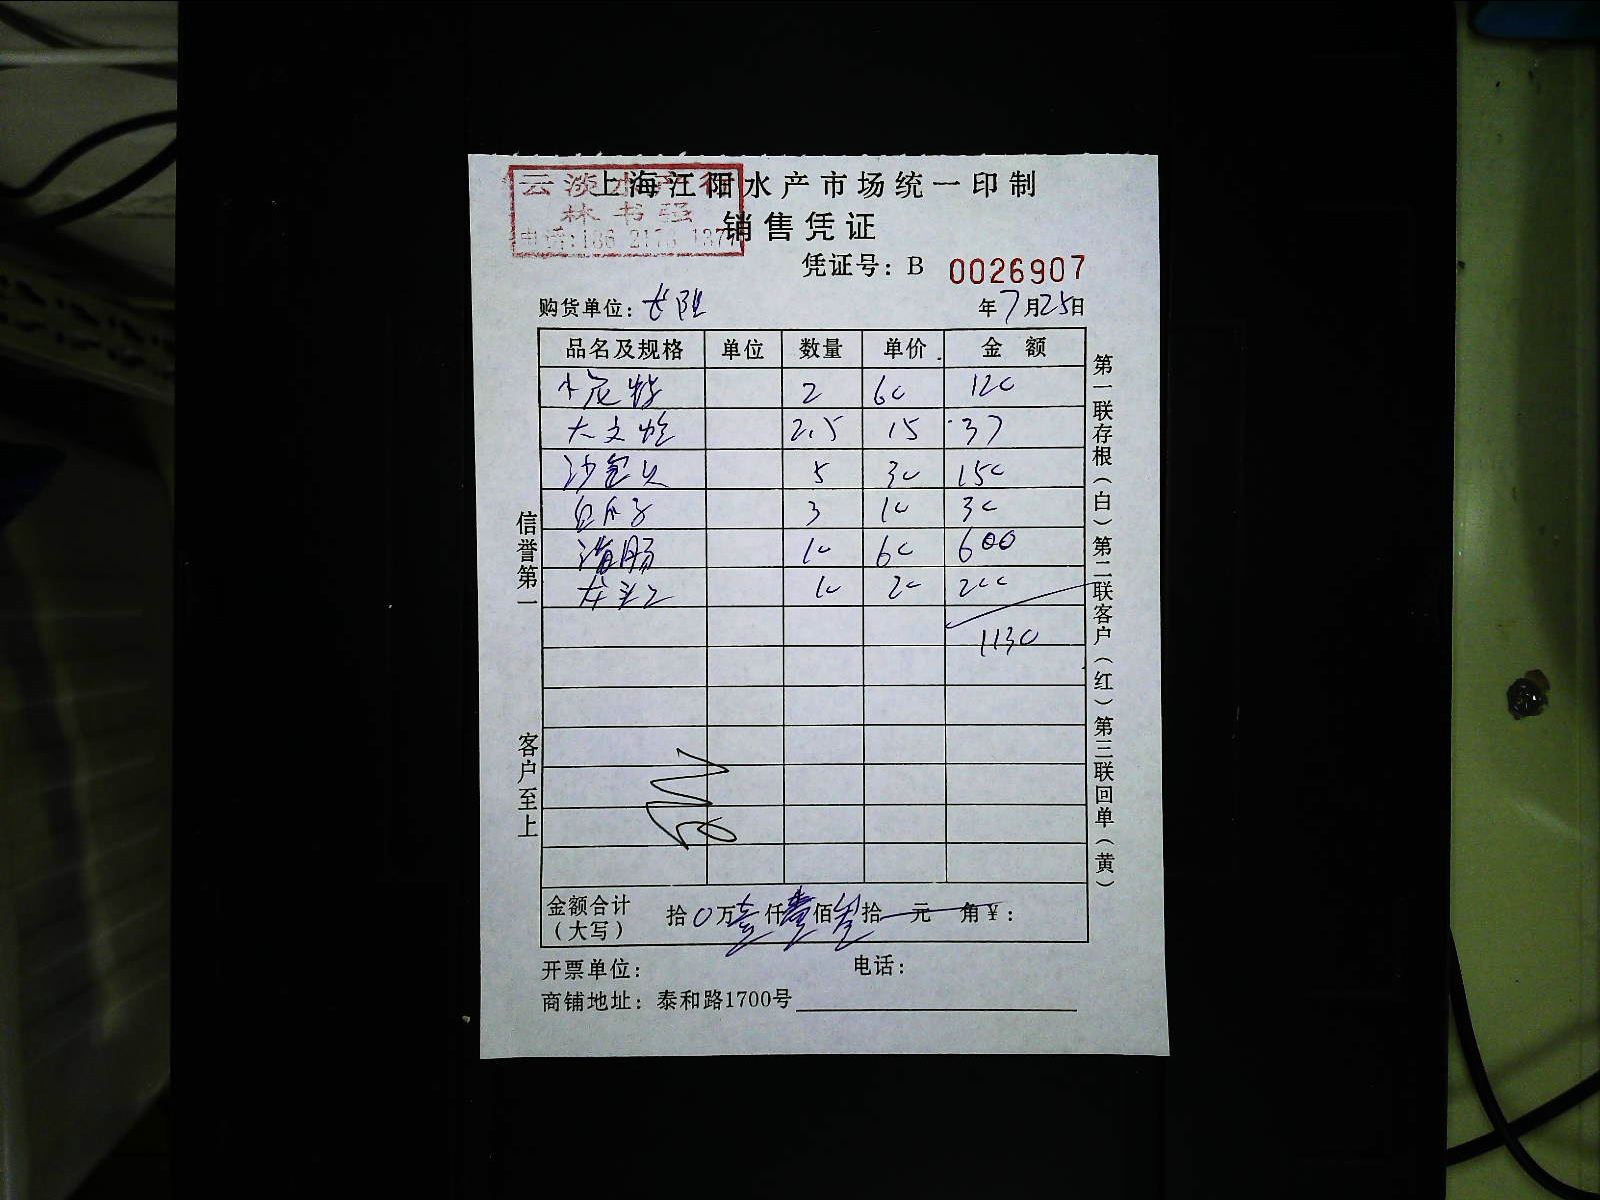 云淡水产行
林书强
上海江阳水产市场统一印制
销售凭证
凭证号：B 0026907
购货单位：长阳 年7月25日
品名及规格 单位 数量 单价 金 额
2 60 120
2.5 15 37
沙包贝 5 30 150
白瓜子 3 10 30
海肠 10 60 600
10 20 200
1130
金额合计（大写） 拾0万壹仟壹佰 拾 元 角￥：
开票单位： 电话：
商铺地址：泰和路1700号
信誉第一 客户至上
第一联存根（白）第二联客户（红）第三联回单（黄）